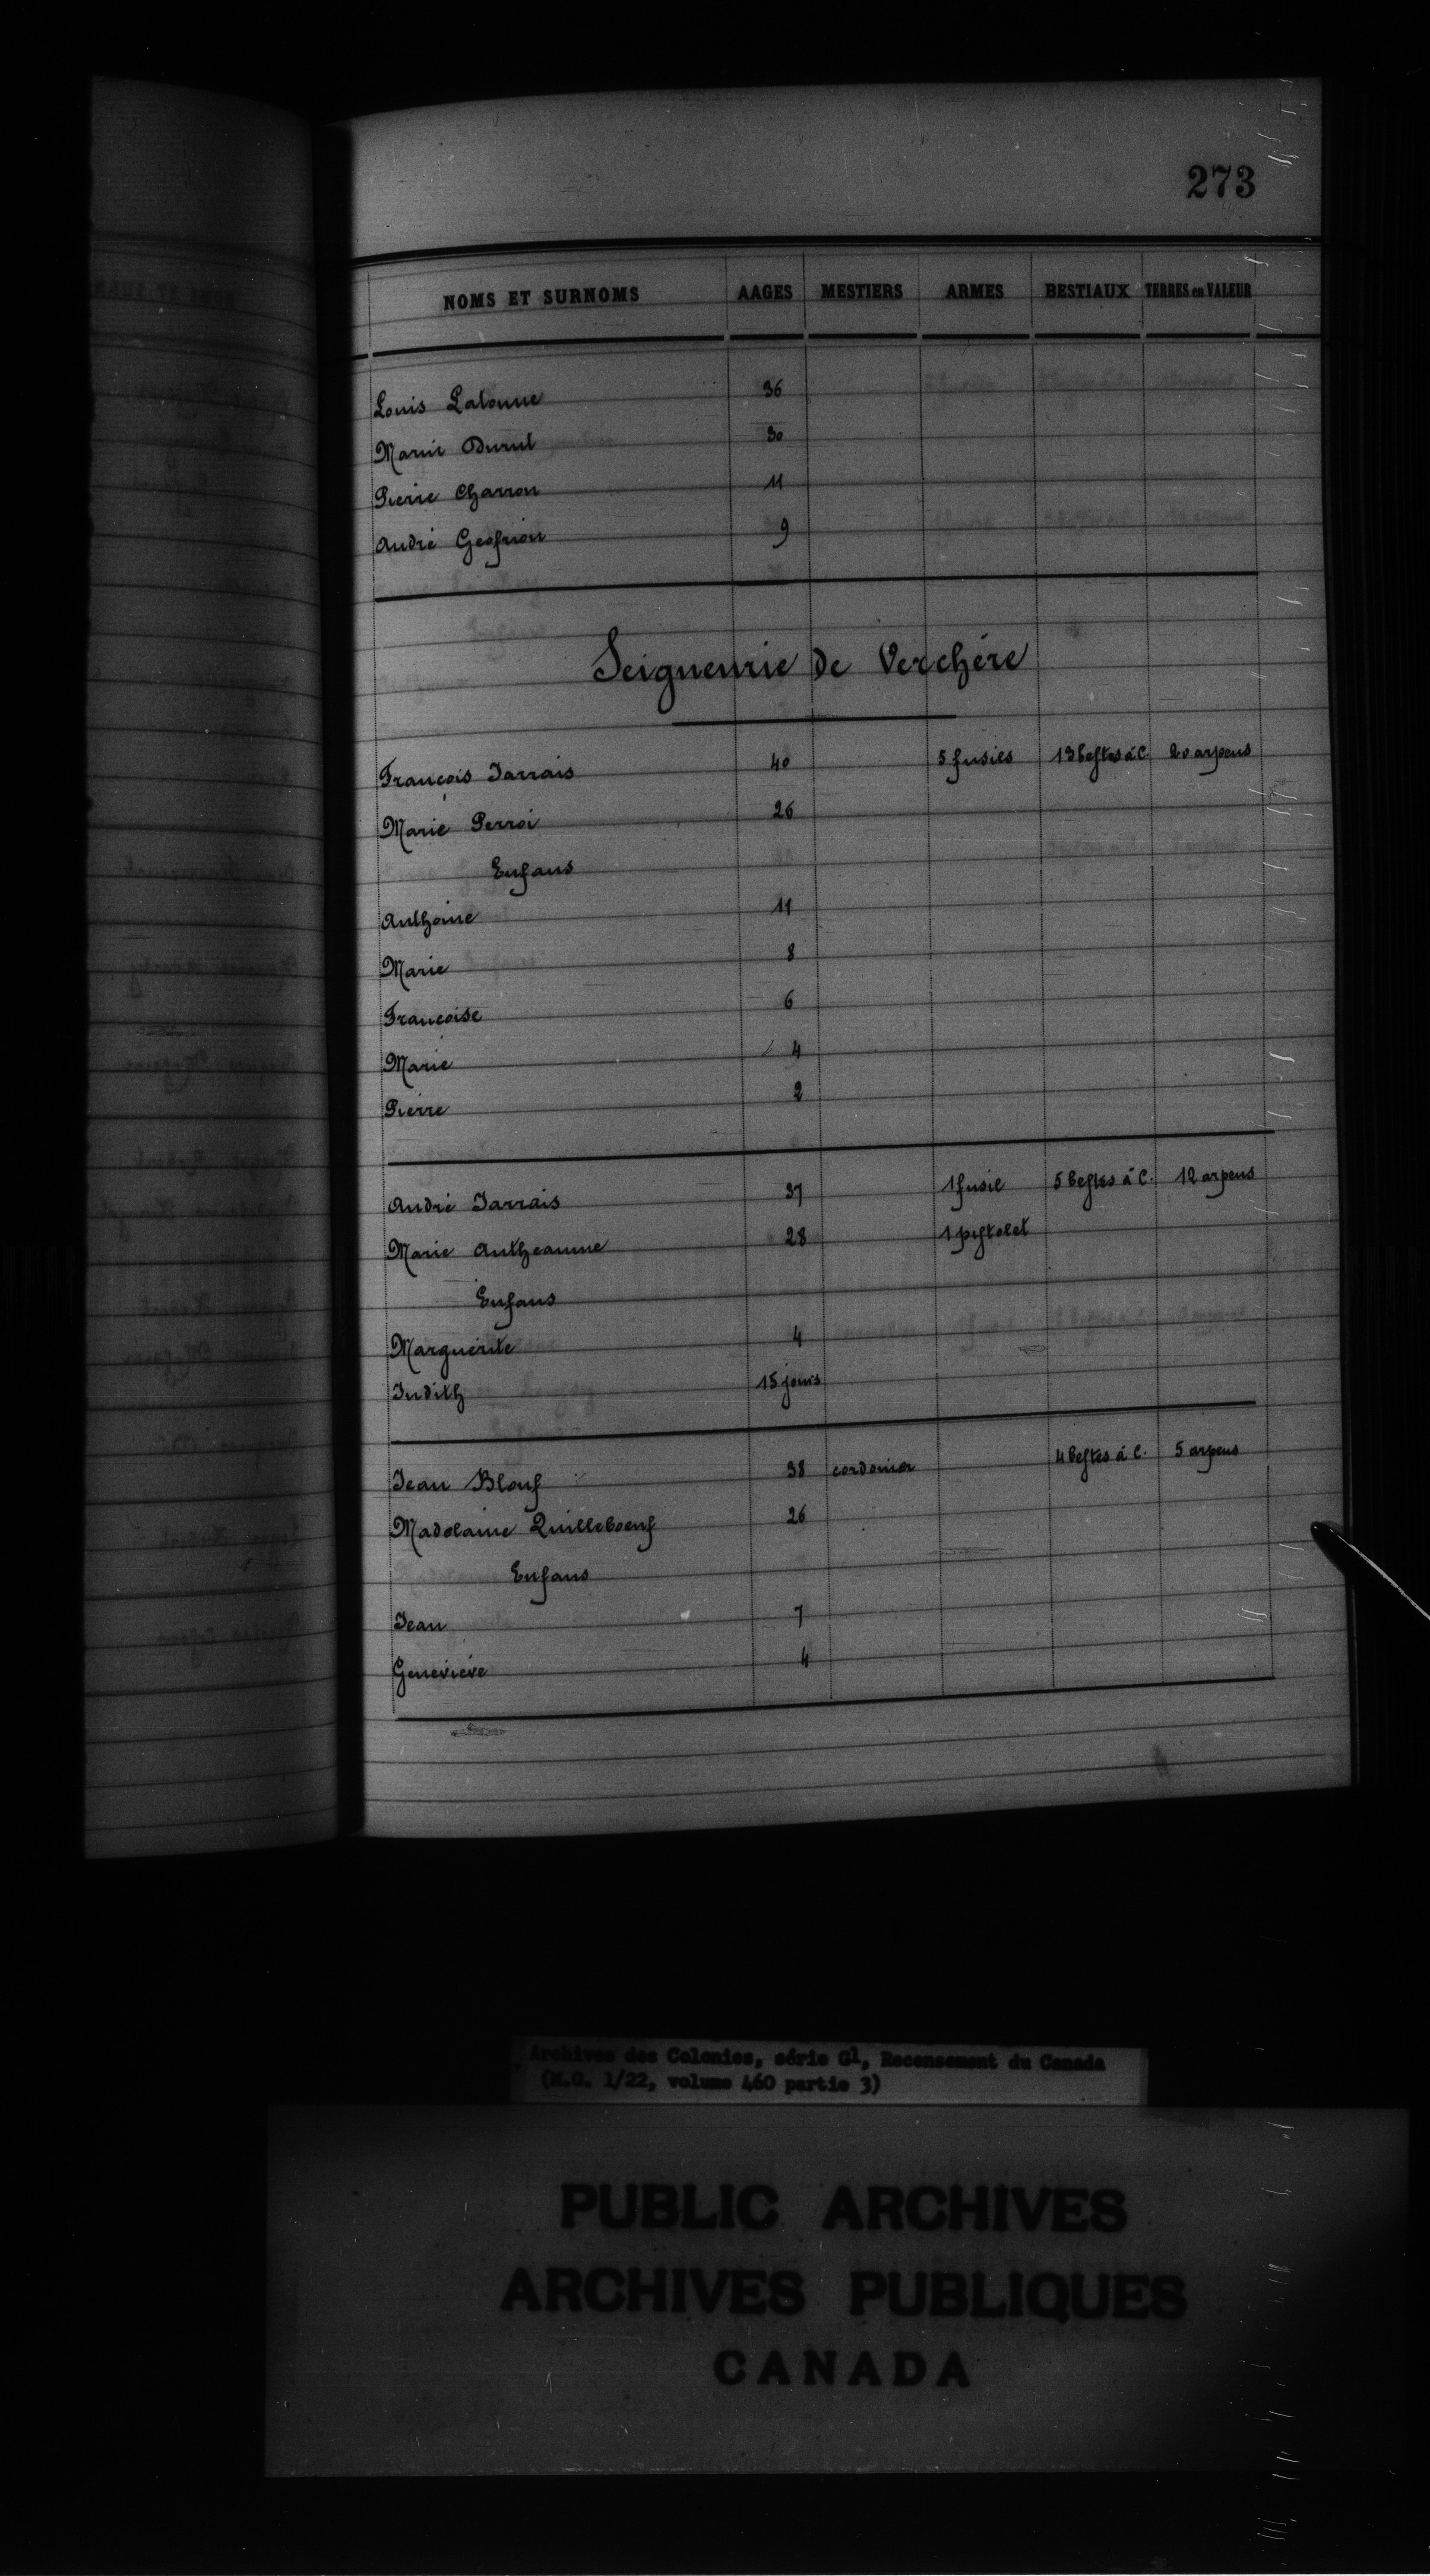 273
NOMS ET SURNOMS AAGES MESTIERS ARMES BESTIAUX TERRES en VALEUR
Louis Lalonne 36
Marie Durul 30
Pierre Charron 11
André Geofrion 9
Seigneurie de Verchére
François Jarrais 40 5 fusils 13 bestes à C. 20 arpens
Marie Perroi 26
Enfans
Anthoine 11
Marie 8
Françoise 6
Marie 4
Pierre 2
André Jarrais 37 1 fusil 5 bestes à C. 12 arpens
Marie Antheaume 28 1 pistolet
Enfans
Marguerite 4
Judith 15 jours
Jean Blouf 38 cordonier 4 bestes à C. 5 arpens
Madelaine Quilleboeuf 26
Enfans
Jean 7
Geneviéve 4
Archives des Colonies, série G1, Recensement du Canada
(M.G. 1/22, volume 460 partie 3)
PUBLIC ARCHIVES
ARCHIVES PUBLIQUES
CANADA